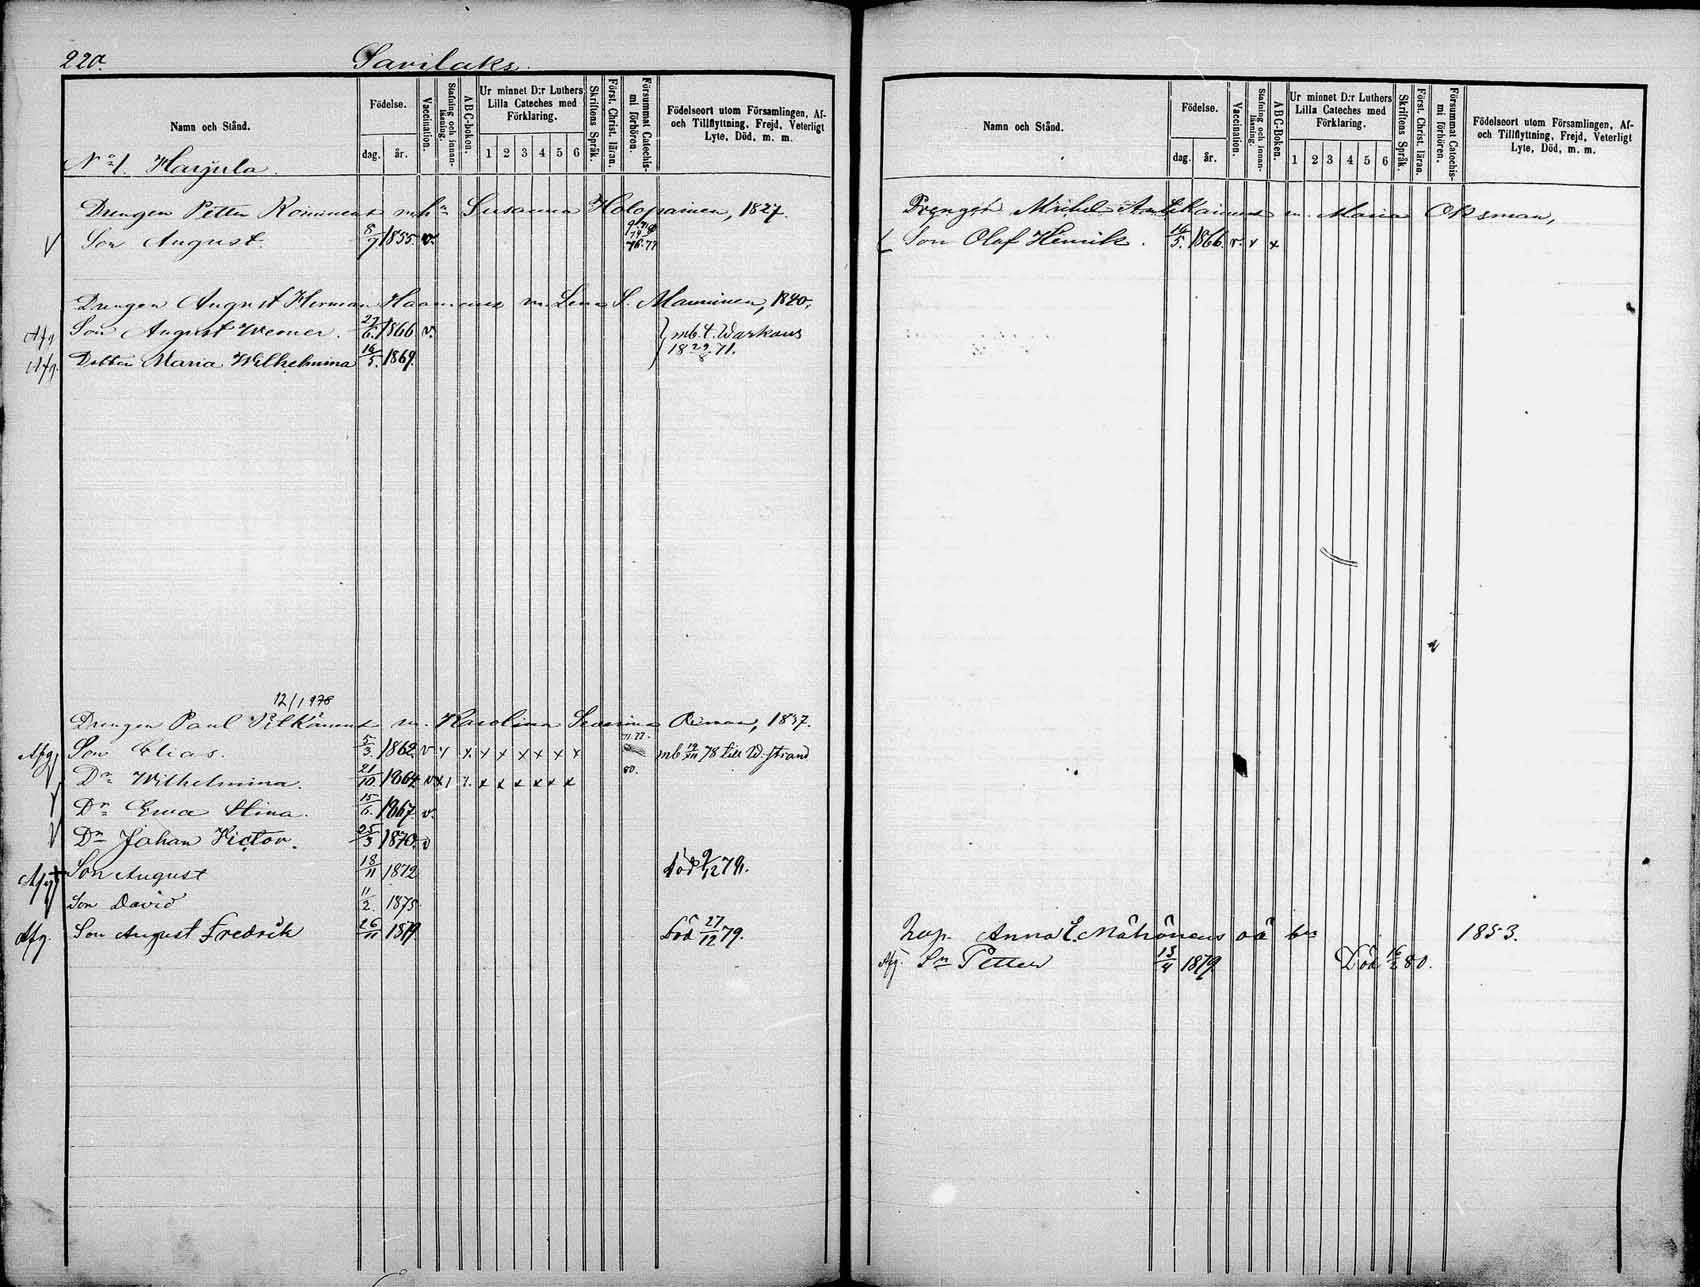 220.
Savilaks
Namn och Stånd.
Födelse.
dag. år.
Vaccination.
Stafning och innan-läsning.
ABC-boken.
Ur minnet D:r Luthers Lilla Cateches med Förklaring.
1 2 3 4 5 6
Skriftens Språk.
Först. Christ. läran.
Försummat Catechis-mi förhören.
Födelseort utom Församlingen, Af- och Tillflyttning, Frejd, Veterligt Lyte, Död, m. m.
No 1. Harjula
Drengen Petter m. h. Susanna Holopainen, 1827.
Son August. 8/9 1855 v. 76.77
Drengen August Herman m. Lena S. Manninen, 1840.
Afg Son August Werner. 27/6 1866 v. mb. t. Warkaus
Afg. Dotter Maria Wilhelmina 16/5 1869. 18 29/8 71.
12/1 978
Drengen Paul Pitkänens m. Karolina Severina Oiman, 1837.
Afg Son Elias. 5/3 1862 v. x x x x x x x x 77. mb 19/XII 78 till W.strand
Dr Wilhelmina. 21/10 1864 v x x x x x x x 80.
Dr Ewa Stina. 15/6 1867 v.
Dn Johan Victor. 25/3 1870 v
Afg Son August 18/11 1872 död 9/12 79.
Son David 11/2. 1875
Afg. Son August Fredrik 26/11 1879 Död 27/12 79.
Namn och Stånd.
Födelse.
dag. år.
Vaccination.
Stafning och innan-läsning.
ABC-Boken.
Ur minnet D:r Luthers Lilla Cateches med Förklaring.
1 2 3 4 5 6
Skriftens Språk
Först. Christ. läran.
Försummat Catechis-mi förhören.
Födelseort utom Församlingen, Af- och Tillflyttning, Frejd, Veterligt Lyte, Död, m. m.
Drengen Michel m. Maria Oksman,
Son Olof Henrik. 14/5. 1866 v. x x
Anna E. Mähönens oä bn 1853.
Afg Sn Petter 13/4 1879. Död 16/2 80.